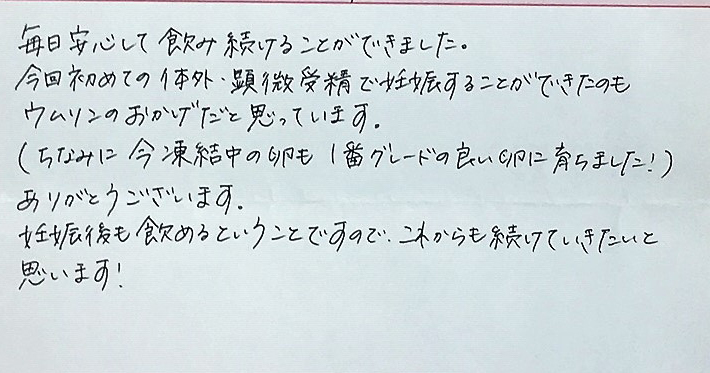 毎日安心して飲み続けることができました。
今回初めての体外・顕微受精で妊娠することができたのも
ウムリンのおかげだと思っています。
(ちなみに今凍結中の卵も1番グレードの良い卵に育ちました!)
ありがとうございます。
妊娠後も飲めるということですので、これからも続けていきたいと
思います!